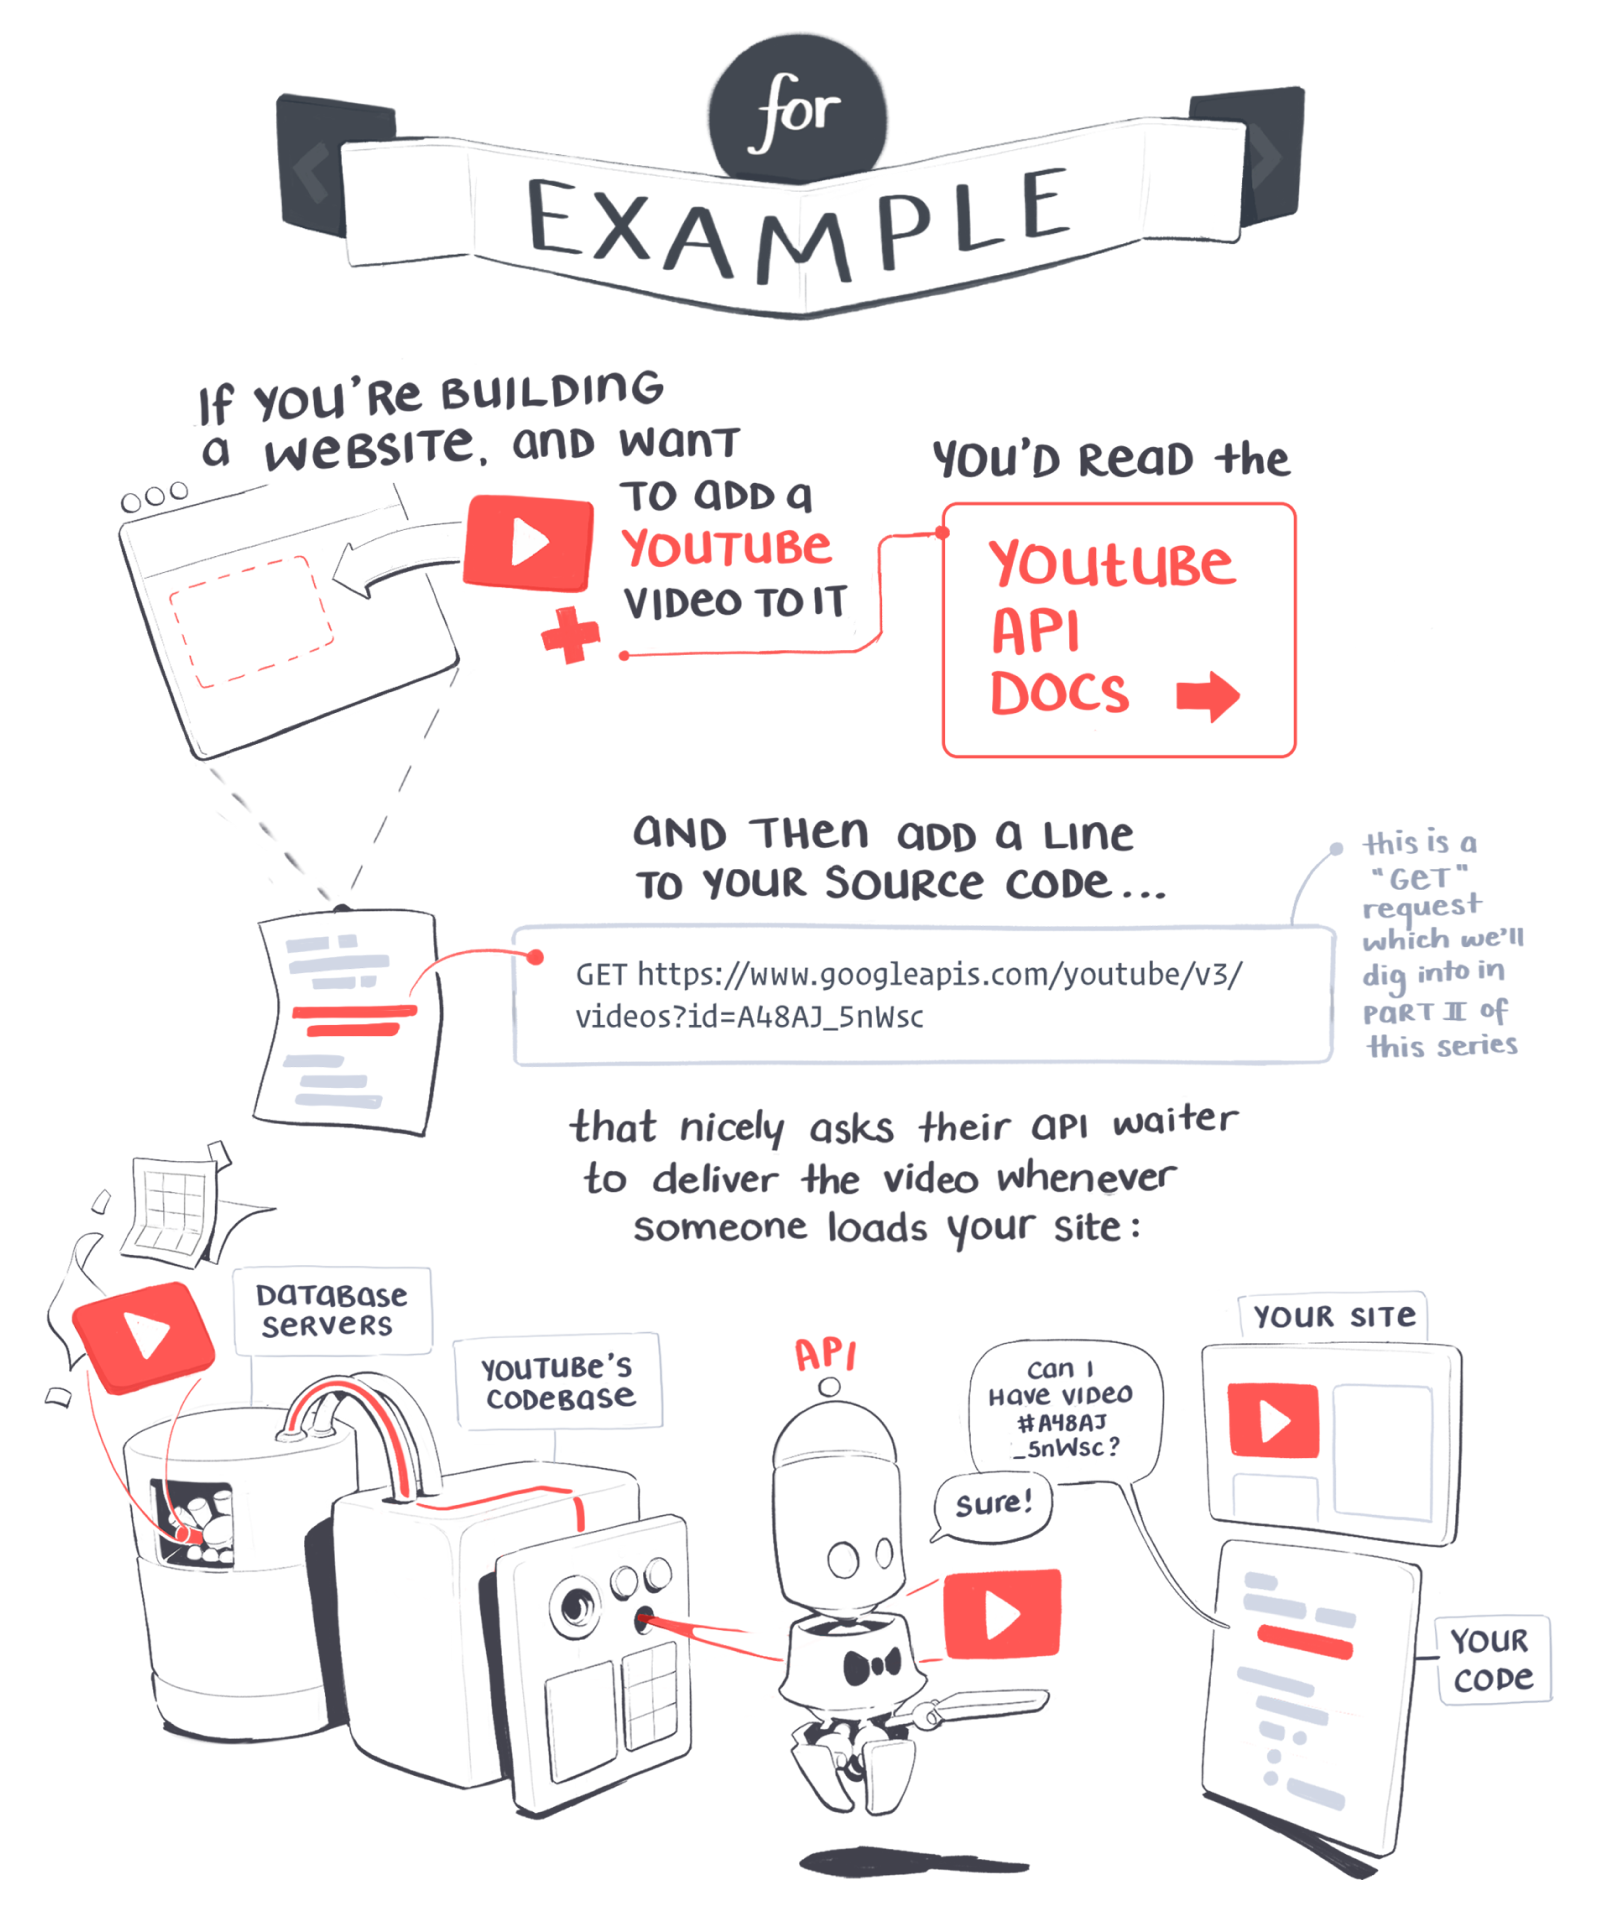 for
EXAMPLE
If you're building
a website, and want
to add a
YouTube
video to it
You'd read the
YouTube
API
Docs
and then add a line
to your source code...
GET https://www.googleapis.com/youtube/v3/
videos?id=A48AJ_5nWsc
this is a
"GET"
request
which we'll
dig into in
PART II of
this series
that nicely asks their API waiter
to deliver the video whenever
someone loads your site:
Database
Servers
YouTube's
Codebase
API
Can I
have video
#A48AJ
_5nWsc?
Sure!
Your site
Your
Code